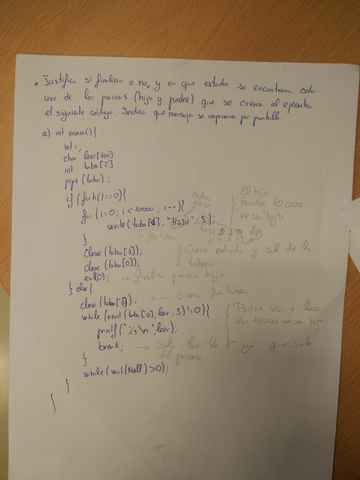 • Justifica si finaliza o no, y en que estado se encontraran cada
uno de los procesos (hijo y padre) que se crean al ejecutar
el siguiente código. Indica que mensaje se imprime por pantalla
a) int main(){
int i,
char leer[100];
int tubo[2]
pipe (tubo);
if (fork()==0){
for (i=0; i<10000; i++){
write(tubo[1], "Hijo", 5);
}
close(tubo[1]);
close(tubo[0]);
exit(0); → finaliza proceso hijo
} else{
close(tubo[1]); ← cierra
while(read(tubo[0], leer, 5)!=0){
printf("%s\n", leer);
break; → Solo lee la 1ª ya que sale
}
while(wait(Null)>0);
}
}
El hijo
escribe 10.000
veces hijo
Cierra entrada y sal de la
tubería
Padre va a leer
las 10000 veces hijo